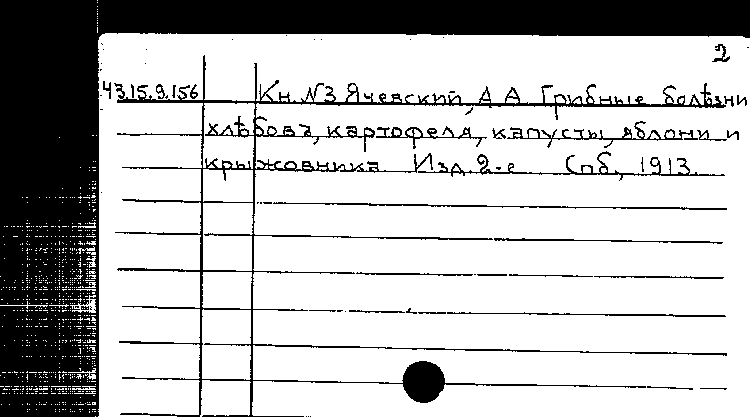 2
43.15.9.156 Кн. №3 Ячевский, А А Грибные болѣзни
хлѣбовъ, картофеля, капусты, яблони и
крыжовника Изд. 2-е Спб., 1913.